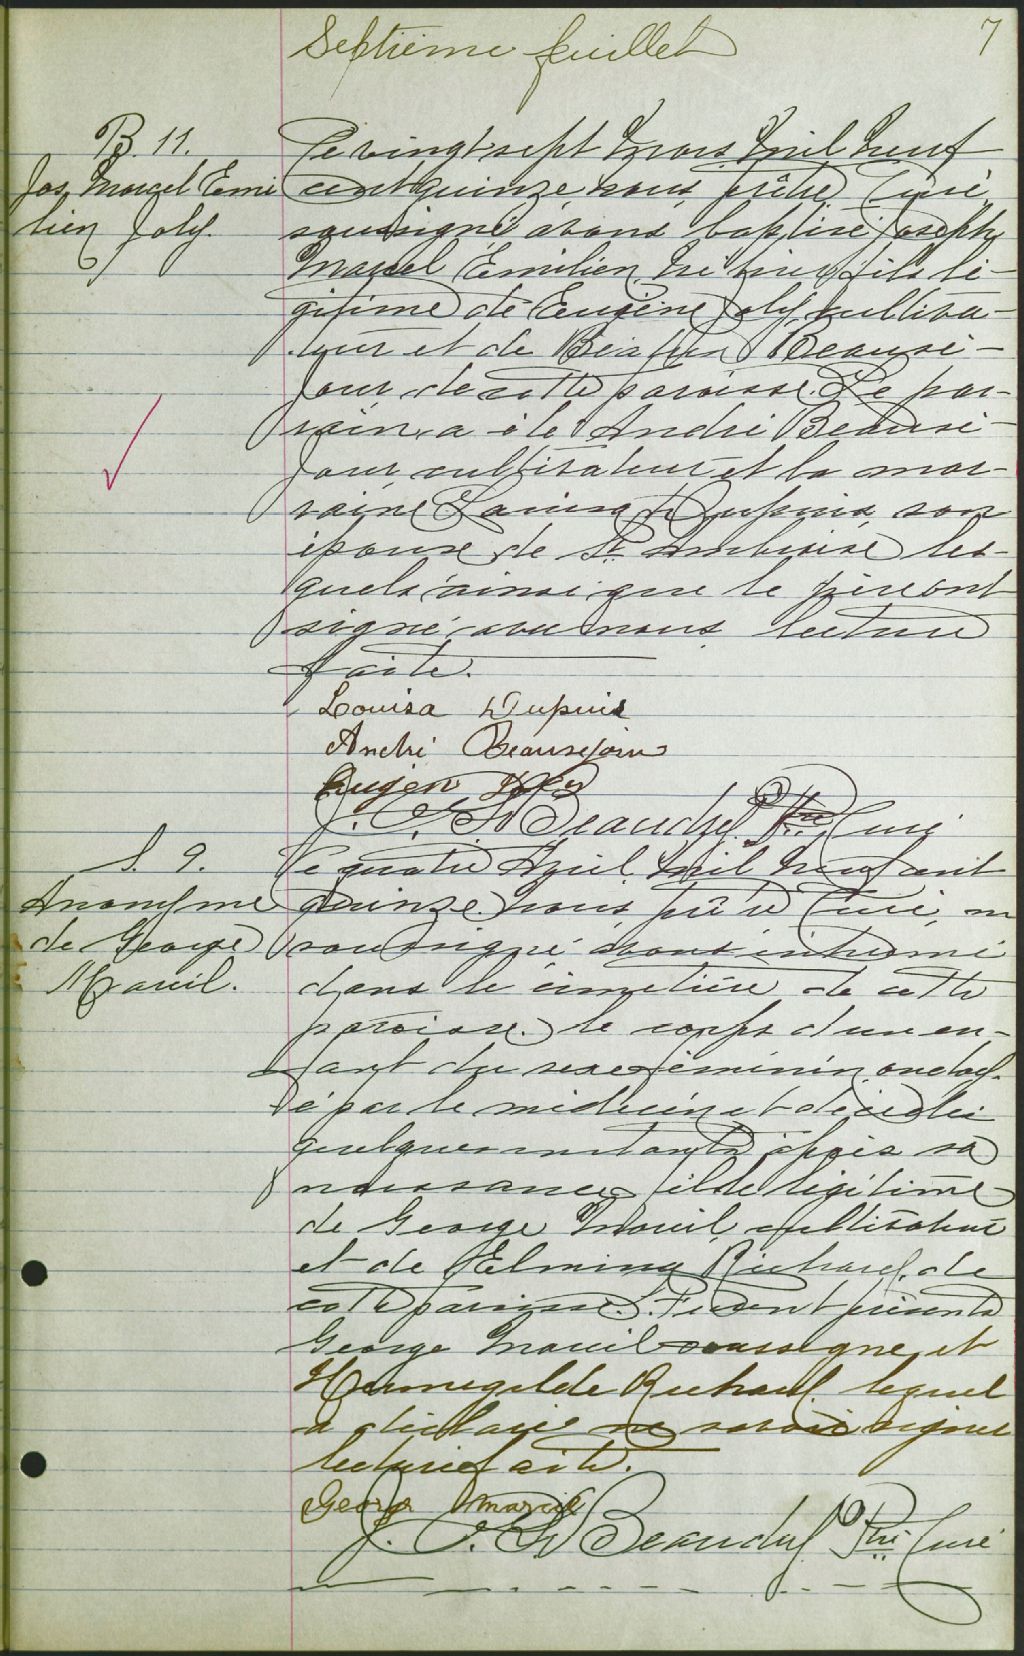 Septième feuillet
7
B. 11.
Jos. Marcel Emi
lien Joly.
Le vingt-sept Mars Mil Neuf
cent quinze, nous, prêtre Curé,
soussigné avons baptisé Joseph
Marcel Emilien né hier, fils lé-
gitime de Eugène Joly, cultiva-
teur et de Beausé-
jour, de cette paroisse. Le par-
rain a été André Beausé-
jour, cultivateur et la mar-
raine Louisa Dupuis, son
épouse, de St. Ambroise les-
quels ainsi que le père ont
signé avec nous, lecture
faite.
Louisa Dupuis
André Beausejour
Eugèn Joly
J. Beaudry Ptre, Curé
S. 9.
Anonyme
de George
Marcil.
Le quatre Avril, Mil Neuf cent
quinze, nous prêtre Curé,
soussigné avons inhumé
dans le cimetière de cette
paroisse, le corps d'un en-
fant du sexe féminin, ondoy-
é par le médecin et décédé
quelques instants après sa
naissance, fille légitime
de George Marcil cultivateur
et de Elmina Richard, de
cette paroisse. Furent présents
George Marcil soussigné, et
Hermegilde Richard, lequel
a déclaré ne savoir signer
lecture faite.
George Marcil
J. Beaudry Ptre Curé